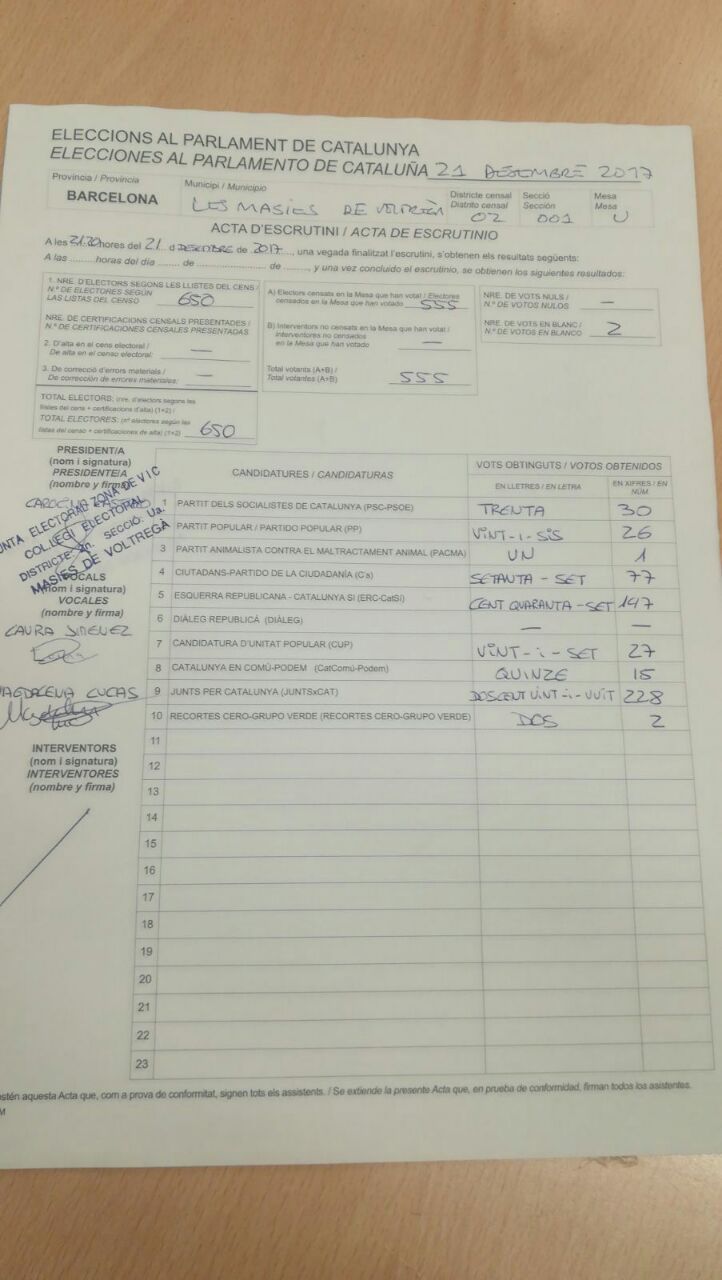 ELECCIONS AL PARLAMENT DE CATALUNYA
ELECCIONES AL PARLAMENTO DE CATALUÑA 21 DESEMBRE 2017
Província / Provincia
BARCELONA
Municipi / Municipio
LES MASIES DE VOLTREGÀ
Districte censal
Distrito censal
02
Secció
Sección
001
Mesa
Mesa
U
ACTA D'ESCRUTINI / ACTA DE ESCRUTINIO
A les 21.20 hores del 21 d DESEMBRE de 2017, una vegada finalitzat l'escrutini, s'obtenen els resultats següents:
A las ........ horas del día ........ de ........ de ........, y una vez concluido el escrutinio, se obtienen los siguientes resultados:
1. NRE. D'ELECTORS SEGONS LES LLISTES DEL CENS /
N.º DE ELECTORES SEGÚN
LAS LISTAS DEL CENSO 650
NRE. DE CERTIFICACIONS CENSALS PRESENTADES /
N.º DE CERTIFICACIONES CENSALES PRESENTADAS
2. D'alta en el cens electoral /
De alta en el censo electoral: —
3. De correcció d'errors materials /
De corrección de errores materiales: —
TOTAL ELECTORS: (nre. d'electors segons les
llistes del cens + certificacions d'alta) (1+2) /
TOTAL ELECTORES: (nº electores según las
listas del censo + certificaciones de alta) (1+2) 650
A) Electors censats en la Mesa que han votat / Electores
censados en la Mesa que han votado 555
B) Interventors no censats en la Mesa que han votat /
interventores no censados
en la Mesa que han votado —
Total votants (A+B) /
Total votantes (A+B) 555
NRE. DE VOTS NULS /
N.º DE VOTOS NULOS —
NRE. DE VOTS EN BLANC /
N.º DE VOTOS EN BLANCO 2
PRESIDENT/A
(nom i signatura)
PRESIDENTE/A
(nombre y firma)
JUNTA ELECTORAL ZONA DE VIC
COL·LEGI ELECTORAL
DISTRICTE 2n. SECCIÓ. Ua.
MASIES DE VOLTREGÀ
VOCALS
(nom i signatura)
VOCALES
(nombre y firma)
LAURA JIMENEZ
MAGDALENA LUCAS
INTERVENTORS
(nom i signatura)
INTERVENTORES
(nombre y firma)
CANDIDATURES / CANDIDATURAS
VOTS OBTINGUTS / VOTOS OBTENIDOS
EN LLETRES / EN LETRA
EN XIFRES / EN NÚM.
1 PARTIT DELS SOCIALISTES DE CATALUNYA (PSC-PSOE) TRENTA 30
2 PARTIT POPULAR / PARTIDO POPULAR (PP) VINT-I-SIS 26
3 PARTIT ANIMALISTA CONTRA EL MALTRACTAMENT ANIMAL (PACMA) UN 1
4 CIUTADANS-PARTIDO DE LA CIUDADANÍA (C's) SETANTA-SET 77
5 ESQUERRA REPUBLICANA - CATALUNYA SI (ERC-CatSí) CENT QUARANTA-SET 147
6 DIÀLEG REPUBLICÀ (DIÀLEG) — —
7 CANDIDATURA D'UNITAT POPULAR (CUP) VINT-I-SET 27
8 CATALUNYA EN COMÚ-PODEM (CatComú-Podem) QUINZE 15
9 JUNTS PER CATALUNYA (JUNTSxCAT) DOSCENT VINT-I-VUIT 228
10 RECORTES CERO-GRUPO VERDE (RECORTES CERO-GRUPO VERDE) DOS 2
11
12
13
14
15
16
17
18
19
20
21
22
23
estén aquesta Acta que, com a prova de conformitat, signen tots els assistents. / Se extiende la presente Acta que, en prueba de conformidad, firman todos los asistentes.